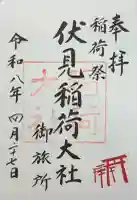 奉拝
稲荷祭
伏見稲荷大社
御旅所
令和八年四月二十七日